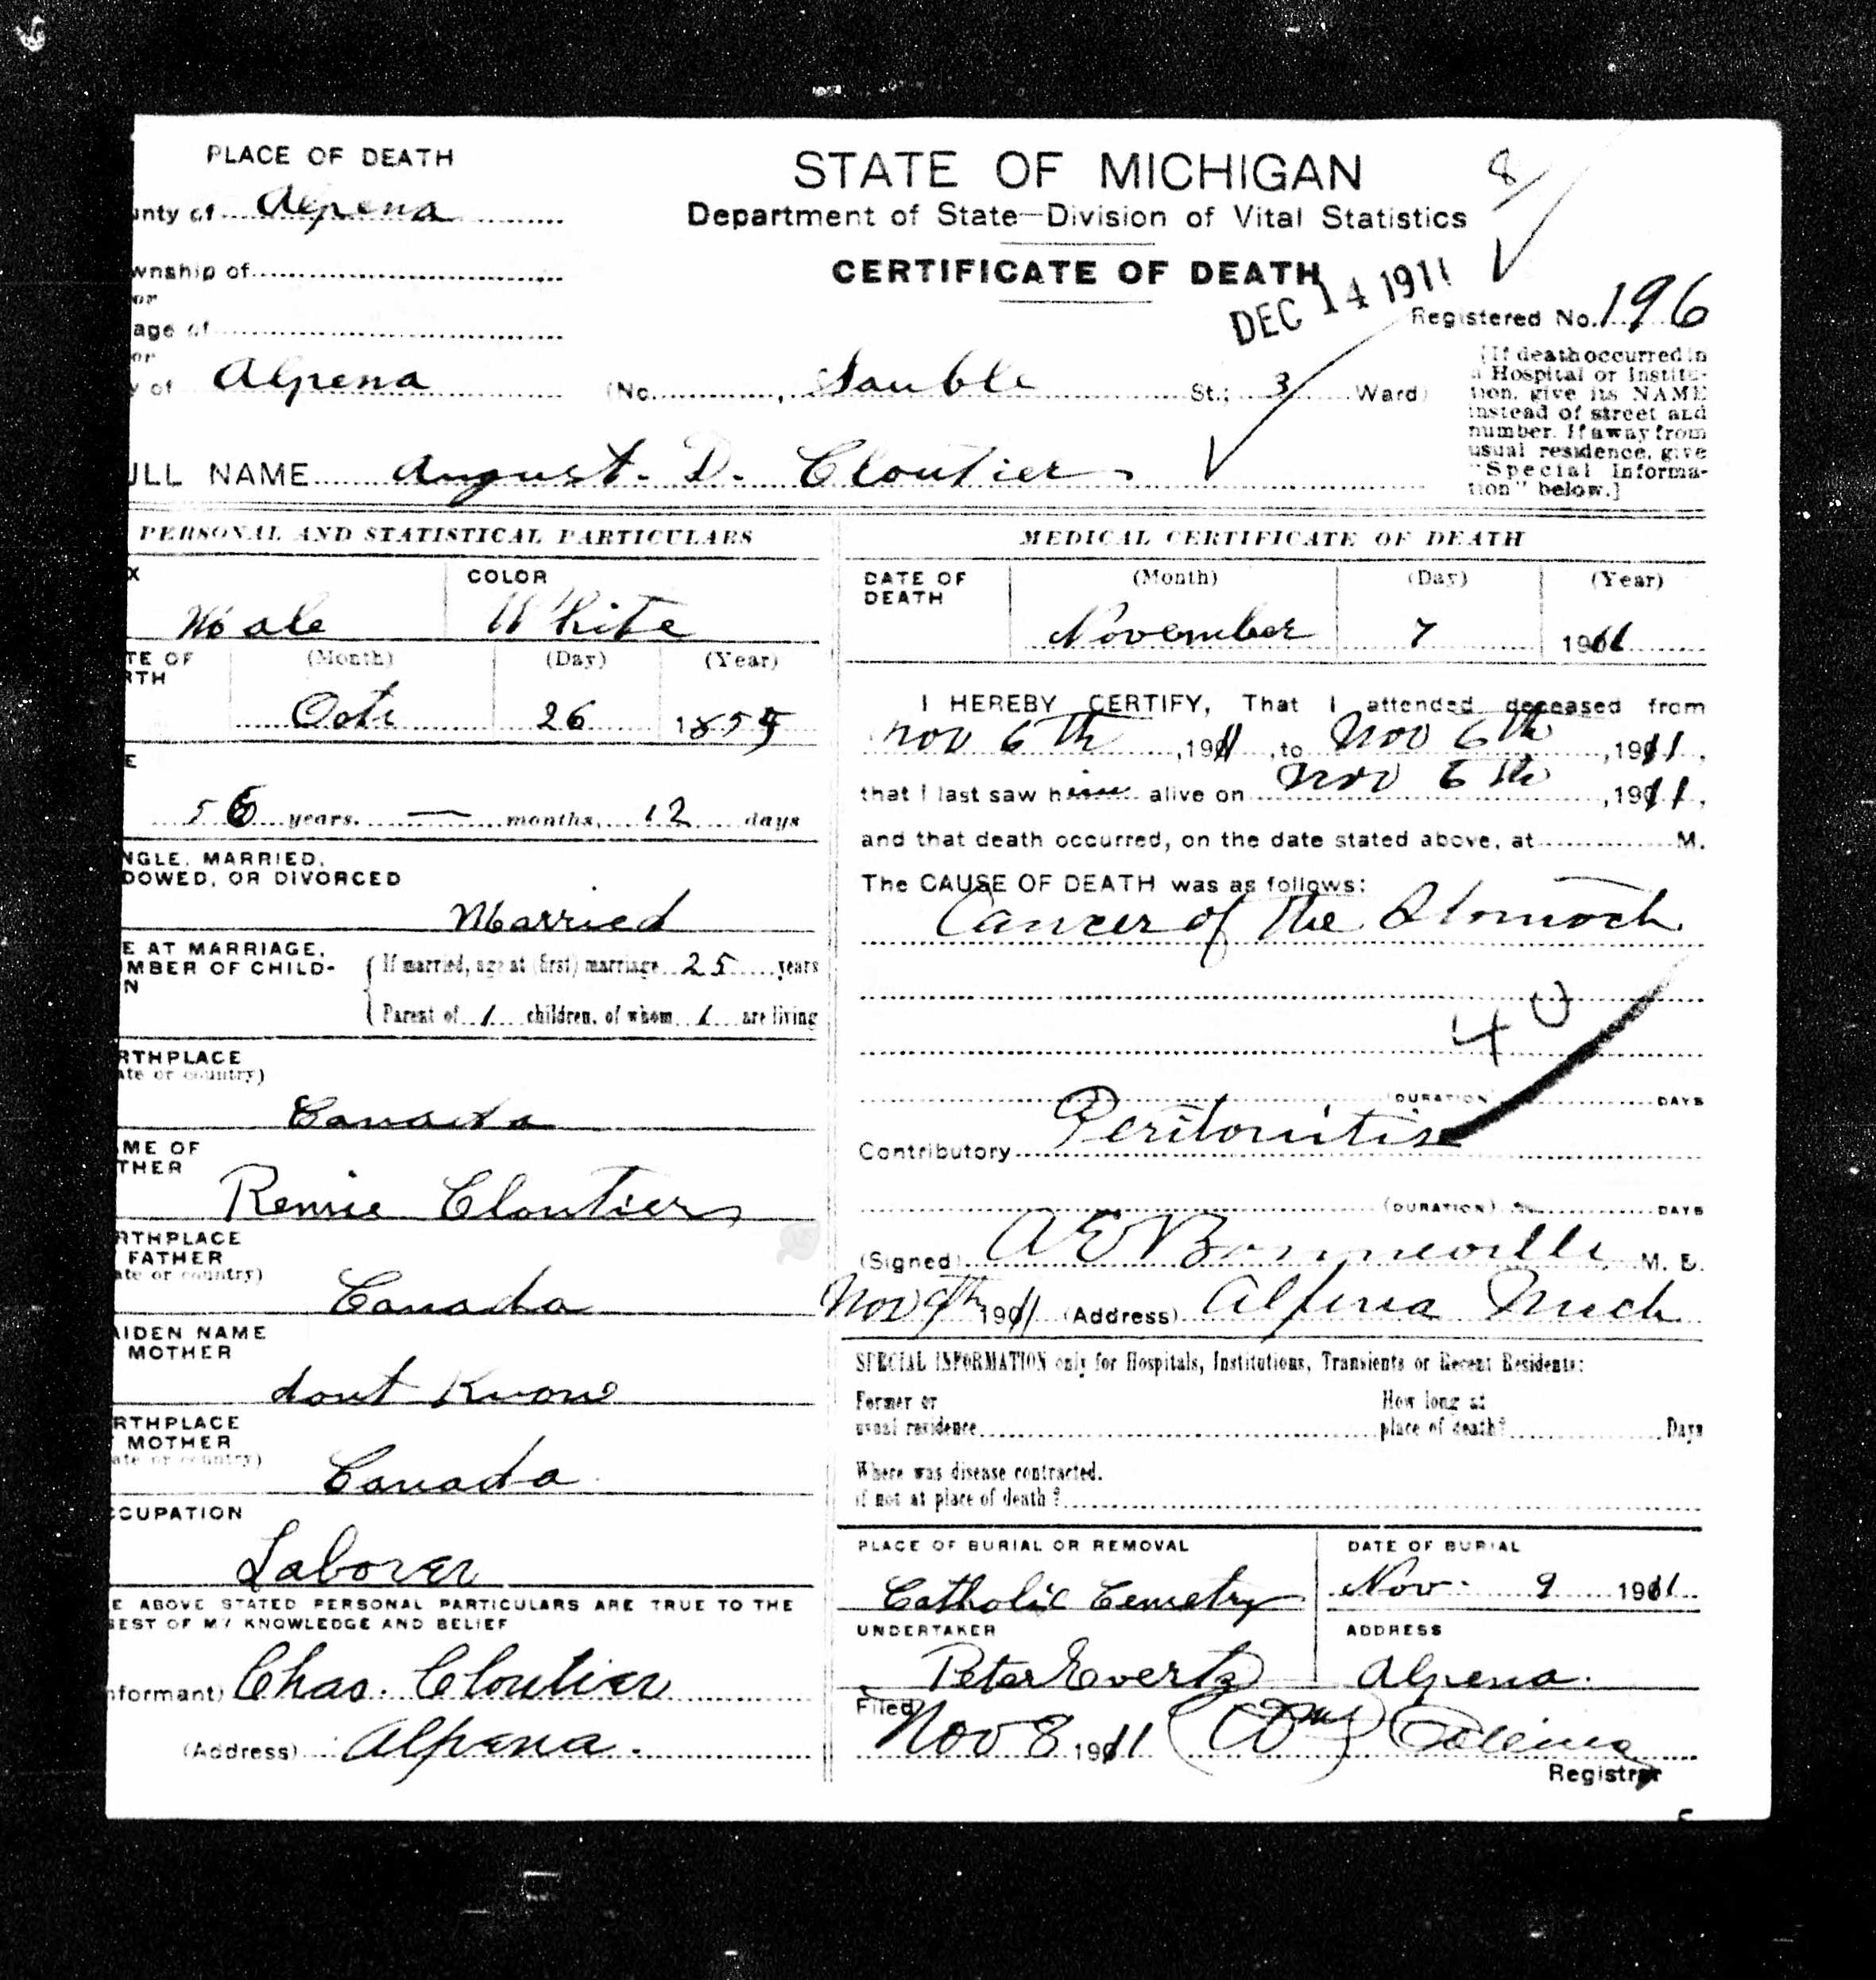 PLACE OF DEATH
unty of Alpena
wnship of
or
age of
or
y of Alpena
STATE OF MICHIGAN
Department of State—Division of Vital Statistics
CERTIFICATE OF DEATH
8
DEC 14 1911
Registered No. 196
(No. , Sauble St.; 3 Ward)
[If death occurred in
a Hospital or Institu-
tion, give its NAME
instead of street and
number. If away from
usual residence, give
"Special Informa-
tion" below.]
ULL NAME August. D. Cloutier
PERSONAL AND STATISTICAL PARTICULARS
X
Male
COLOR
White
TE OF
RTH
(Month) (Day) (Year)
Octe 26 1855
E
56 years. — months, 12 days
NGLE, MARRIED,
DOWED, OR DIVORCED
Married
E AT MARRIAGE,
MBER OF CHILD-
N
If married, age at (first) marriage 25 years
Parent of 1 children, of whom 1 are living
RTHPLACE
ate or country)
Canada
ME OF
THER
Remie Cloutier
RTHPLACE
FATHER
ate or country)
Canada
AIDEN NAME
MOTHER
dont Know
RTHPLACE
MOTHER
ate or country)
Canada
CCUPATION
Laborer
E ABOVE STATED PERSONAL PARTICULARS ARE TRUE TO THE
BEST OF MY KNOWLEDGE AND BELIEF
nformant) Chas. Cloutier
(Address) Alpena.
MEDICAL CERTIFICATE OF DEATH
DATE OF
DEATH
(Month) (Day) (Year)
November 7 1911
I HEREBY CERTIFY, That I attended deceased from
Nov 6th, 1911, to Nov 6th, 1911,
that I last saw him alive on Nov 6th, 1911,
and that death occurred, on the date stated above, at M.
The CAUSE OF DEATH was as follows:
Cancer of the Stomach
40
(DURATION) DAYS
Contributory Peritonitis
(DURATION) DAYS
(Signed) A E Bonneville M. D.
Nov 9th 1911 (Address) Alpena Mich
SPECIAL INFORMATION only for Hospitals, Institutions, Transients or Recent Residents:
Former or
usual residence
How long at
place of death? Days
Where was disease contracted,
if not at place of death?
PLACE OF BURIAL OR REMOVAL
Catholic Cemetry
DATE OF BURIAL
Nov. 9 1911
UNDERTAKER
Peter Evertz
ADDRESS
Alpena.
Filed
Nov 8 1911
Registrar